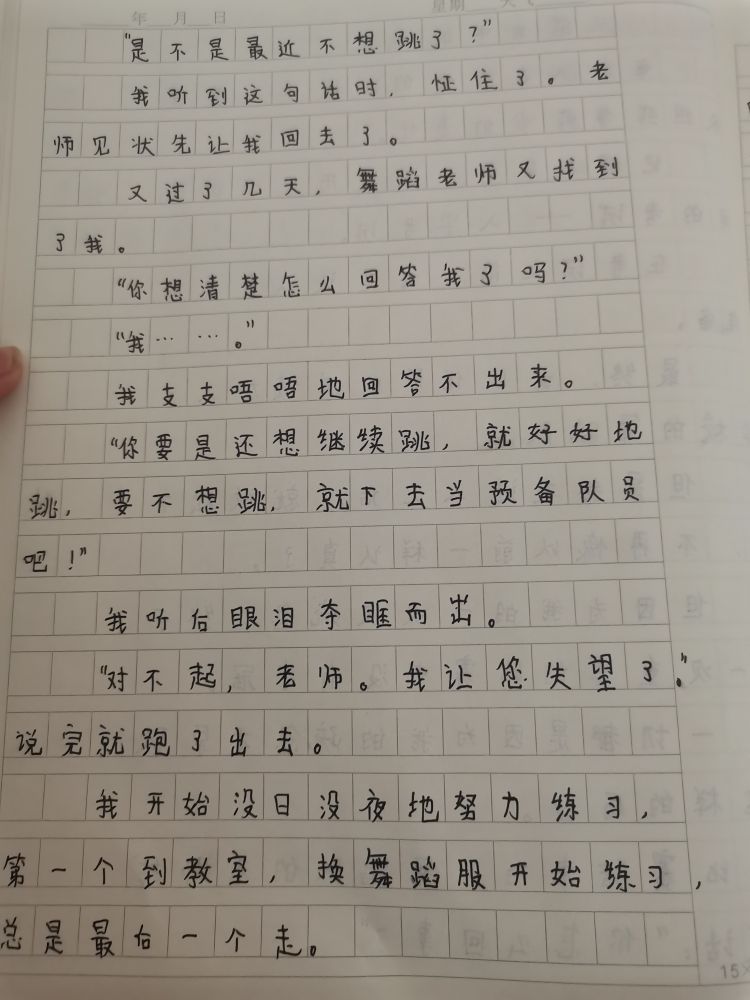 年 月 日 星期 天气
“是不是最近不想跳了?”
我听到这句话时,怔住了。老
师见状先让我回去了。
又过了几天,舞蹈老师又找到
了我。
“你想清楚怎么回答我了吗?”
“我……。”
我支支唔唔地回答不出来。
“你要是还想继续跳,就好好地
跳,要不想跳,就下去当预备队员
吧!”
我听后眼泪夺眶而出。
“对不起,老师。我让您失望了。”
说完就跑了出去。
我开始没日没夜地努力练习,
第一个到教室,换舞蹈服开始练习,
总是最后一个走。
15×